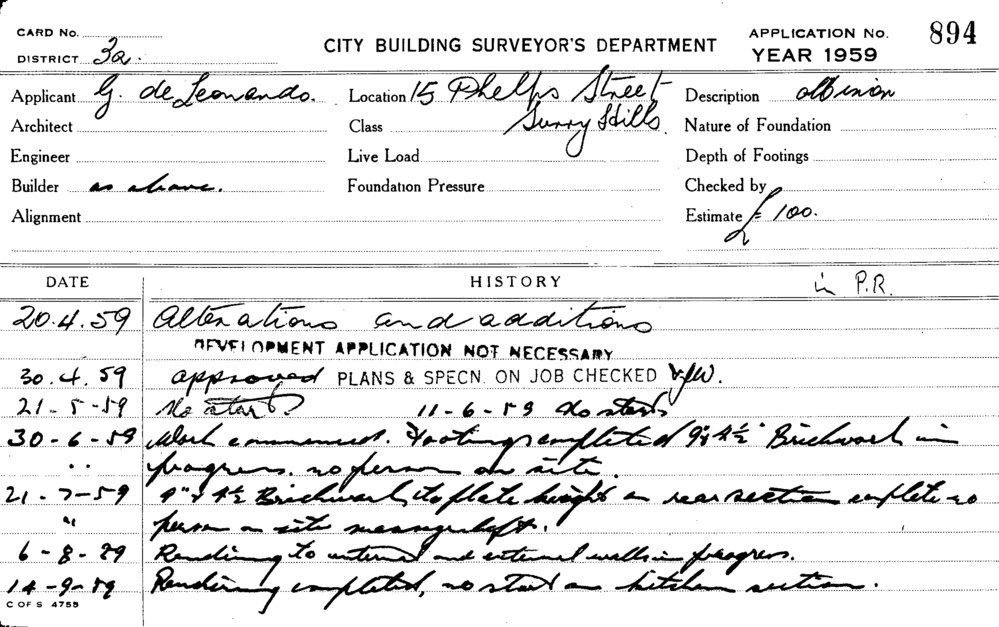 CARD No.
DISTRICT 3a.
CITY BUILDING SURVEYOR'S DEPARTMENT
APPLICATION No. 894
YEAR 1959
Applicant G. de Leonardo. Location 15 Phelps Street Description
Architect Class Surry Hills. Nature of Foundation
Engineer Live Load Depth of Footings
Builder as above. Foundation Pressure Checked by
Alignment Estimate £ 100.
DATE HISTORY in P.R.
20.4.59 Alterations and additions
DEVELOPMENT APPLICATION NOT NECESSARY
30.4.59 approved PLANS & SPECN. ON JOB CHECKED
21-5-59 No start. 11-6-59 No start
30-6-59 Work commenced. Footings completed 9" & 4½" Brickwork in
" progress. no person on site.
21-7-59 9" & 4½ Brickwork to plate height on rear section complete no
" person on site message left.
6-8-59 Rendering to internal and external walls in progress.
14-9-59 Rendering completed, no start on kitchen section.
C OF S 4755